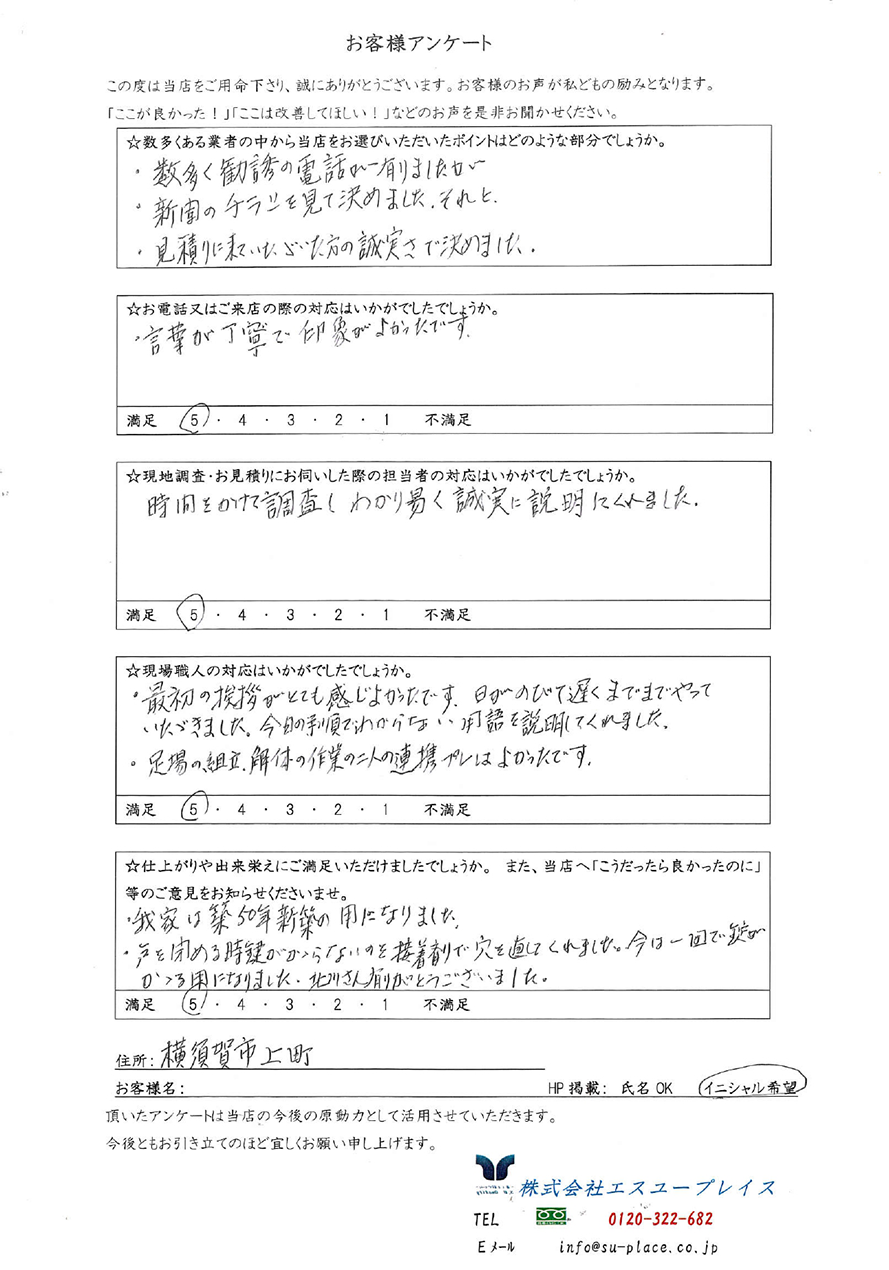 お客様アンケート
この度は当店をご用命下さり、誠にありがとうございます。お客様のお声が私どもの励みとなります。
「ここが良かった！」「ここは改善してほしい！」などのお声を是非お聞かせください。
☆数多くある業者の中から当店をお選びいただいたポイントはどのような部分でしょうか。
・数多く勧誘の電話が有りましたが
・新聞のチラシを見て決めました．それと、
・見積りに来ていただいた方の誠実さで決めました．
☆お電話又はご来店の際の対応はいかがでしたでしょうか。
・言葉が丁寧で印象がよかったです．
満足 5 ・ 4 ・ 3 ・ 2 ・ 1 不満足
☆現地調査・お見積りにお伺いした際の担当者の対応はいかがでしたでしょうか。
時間をかけて調査し わかり易く誠実に説明してくれました．
満足 5 ・ 4 ・ 3 ・ 2 ・ 1 不満足
☆現場職人の対応はいかがでしたでしょうか。
・最初の挨拶がとても感じよかったです．日がのびて遅くまでまでやって
いただきました。今日の手順でわからない用語を説明してくれました．
・足場の組立．解体の作業の二人の連携プレはよかったです．
満足 5 ・ 4 ・ 3 ・ 2 ・ 1 不満足
☆仕上がりや出来栄えにご満足いただけましたでしょうか。 また、当店へ「こうだったら良かったのに」
等のご意見をお知らせくださいませ。
・我家は築50年新築の用になりました．
・戸を閉める時鍵がかからないのを接着剤で穴を直してくれました。今は一回で錠が
かゝる用になりました．北川さん有りがとうございました。
満足 5 ・ 4 ・ 3 ・ 2 ・ 1 不満足
住所: 横須賀市上町
お客様名: HP掲載: 氏名OK イニシャル希望
頂いたアンケートは当店の今後の原動力として活用させていただきます。
今後ともお引き立てのほど宜しくお願い申し上げます。
株式会社エスユープレイス
TEL 0120-322-682
Eメール info@su-place.co.jp